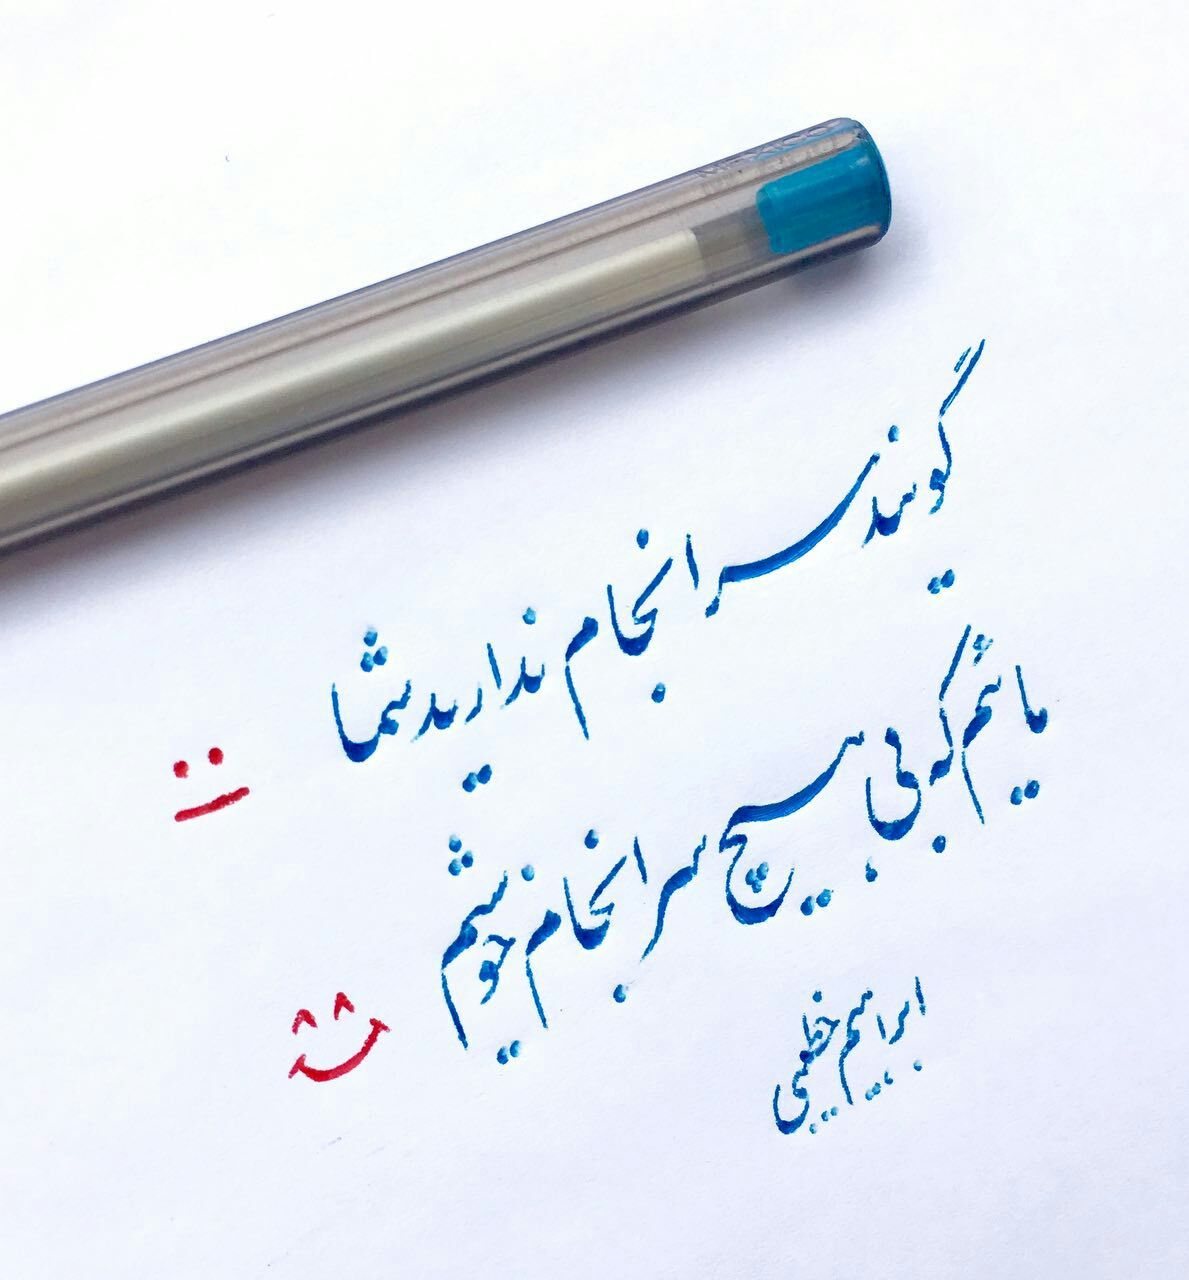 گویند سرانجام ندارید شما
مائیم که بی هیچ سرانجام خوشیم
ابراهیم خطیبی